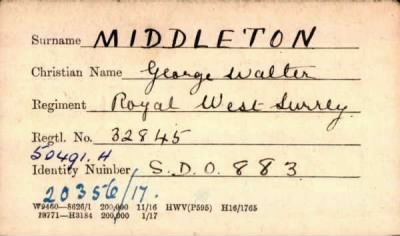 Surname MIDDLETON
Christian Name George Walter
Regiment Royal West Surrey
Regtl. No. 32845
50491.H
Identity Number S.D.O. 883
20356/17.
W9460—8626/1 200,000 11/16 HWV(P595) H16/1765
19771—H3184 200,000 1/17